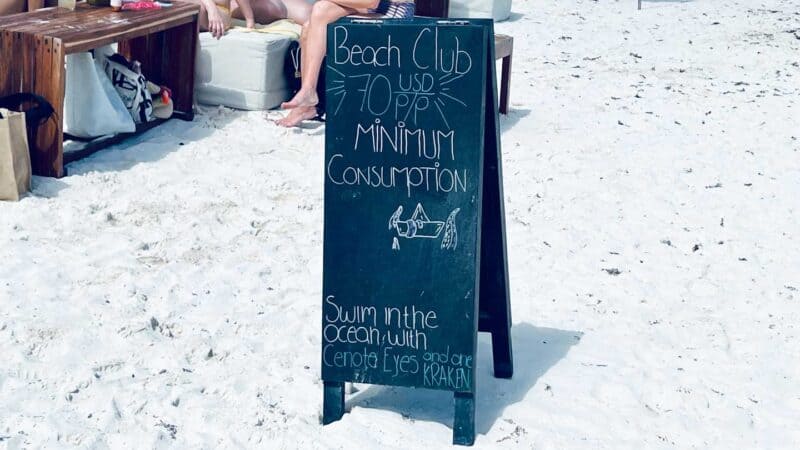 Beach Club
70 USD P/P
MINIMUM
CONSUMPTION
Swim in the
ocean, with
Cenote Eyes and one
KRAKEN